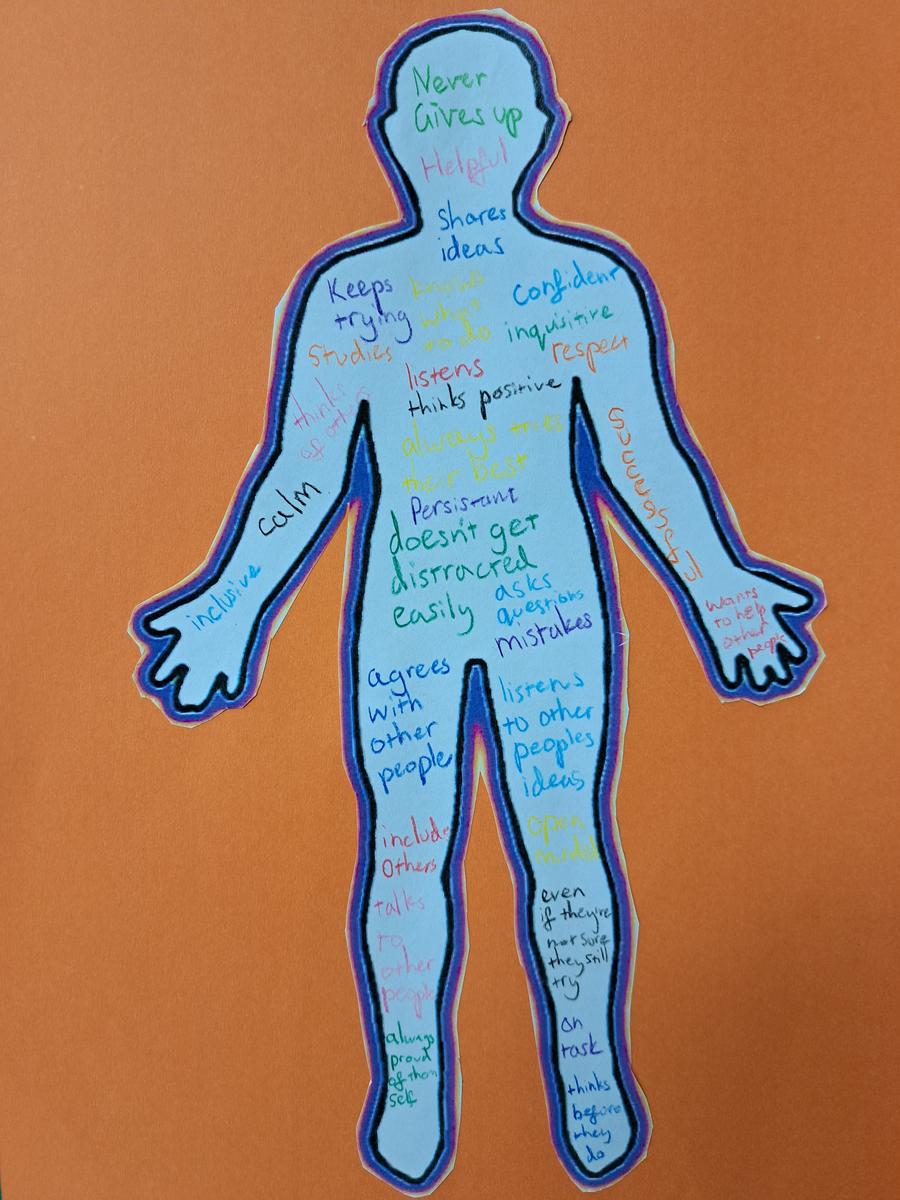 Never
Gives up
Helpful
shares
ideas
Keeps
trying
knows
what
to do
confident
inquisitive
respect
studies
listens
thinks positive
thinks
of others
always tries
their best
Persistant
calm
successful
doesn't get
distracted
easily
asks
questions
mistakes
inclusive
wants
to help
other
people
agrees
with
other
people
listens
to other
peoples
ideas
include
Others
open
minded
talks
to
other
people
even
if they're
not sure
they still
try
always
proud
of them
self
on
task
thinks
before
they
do